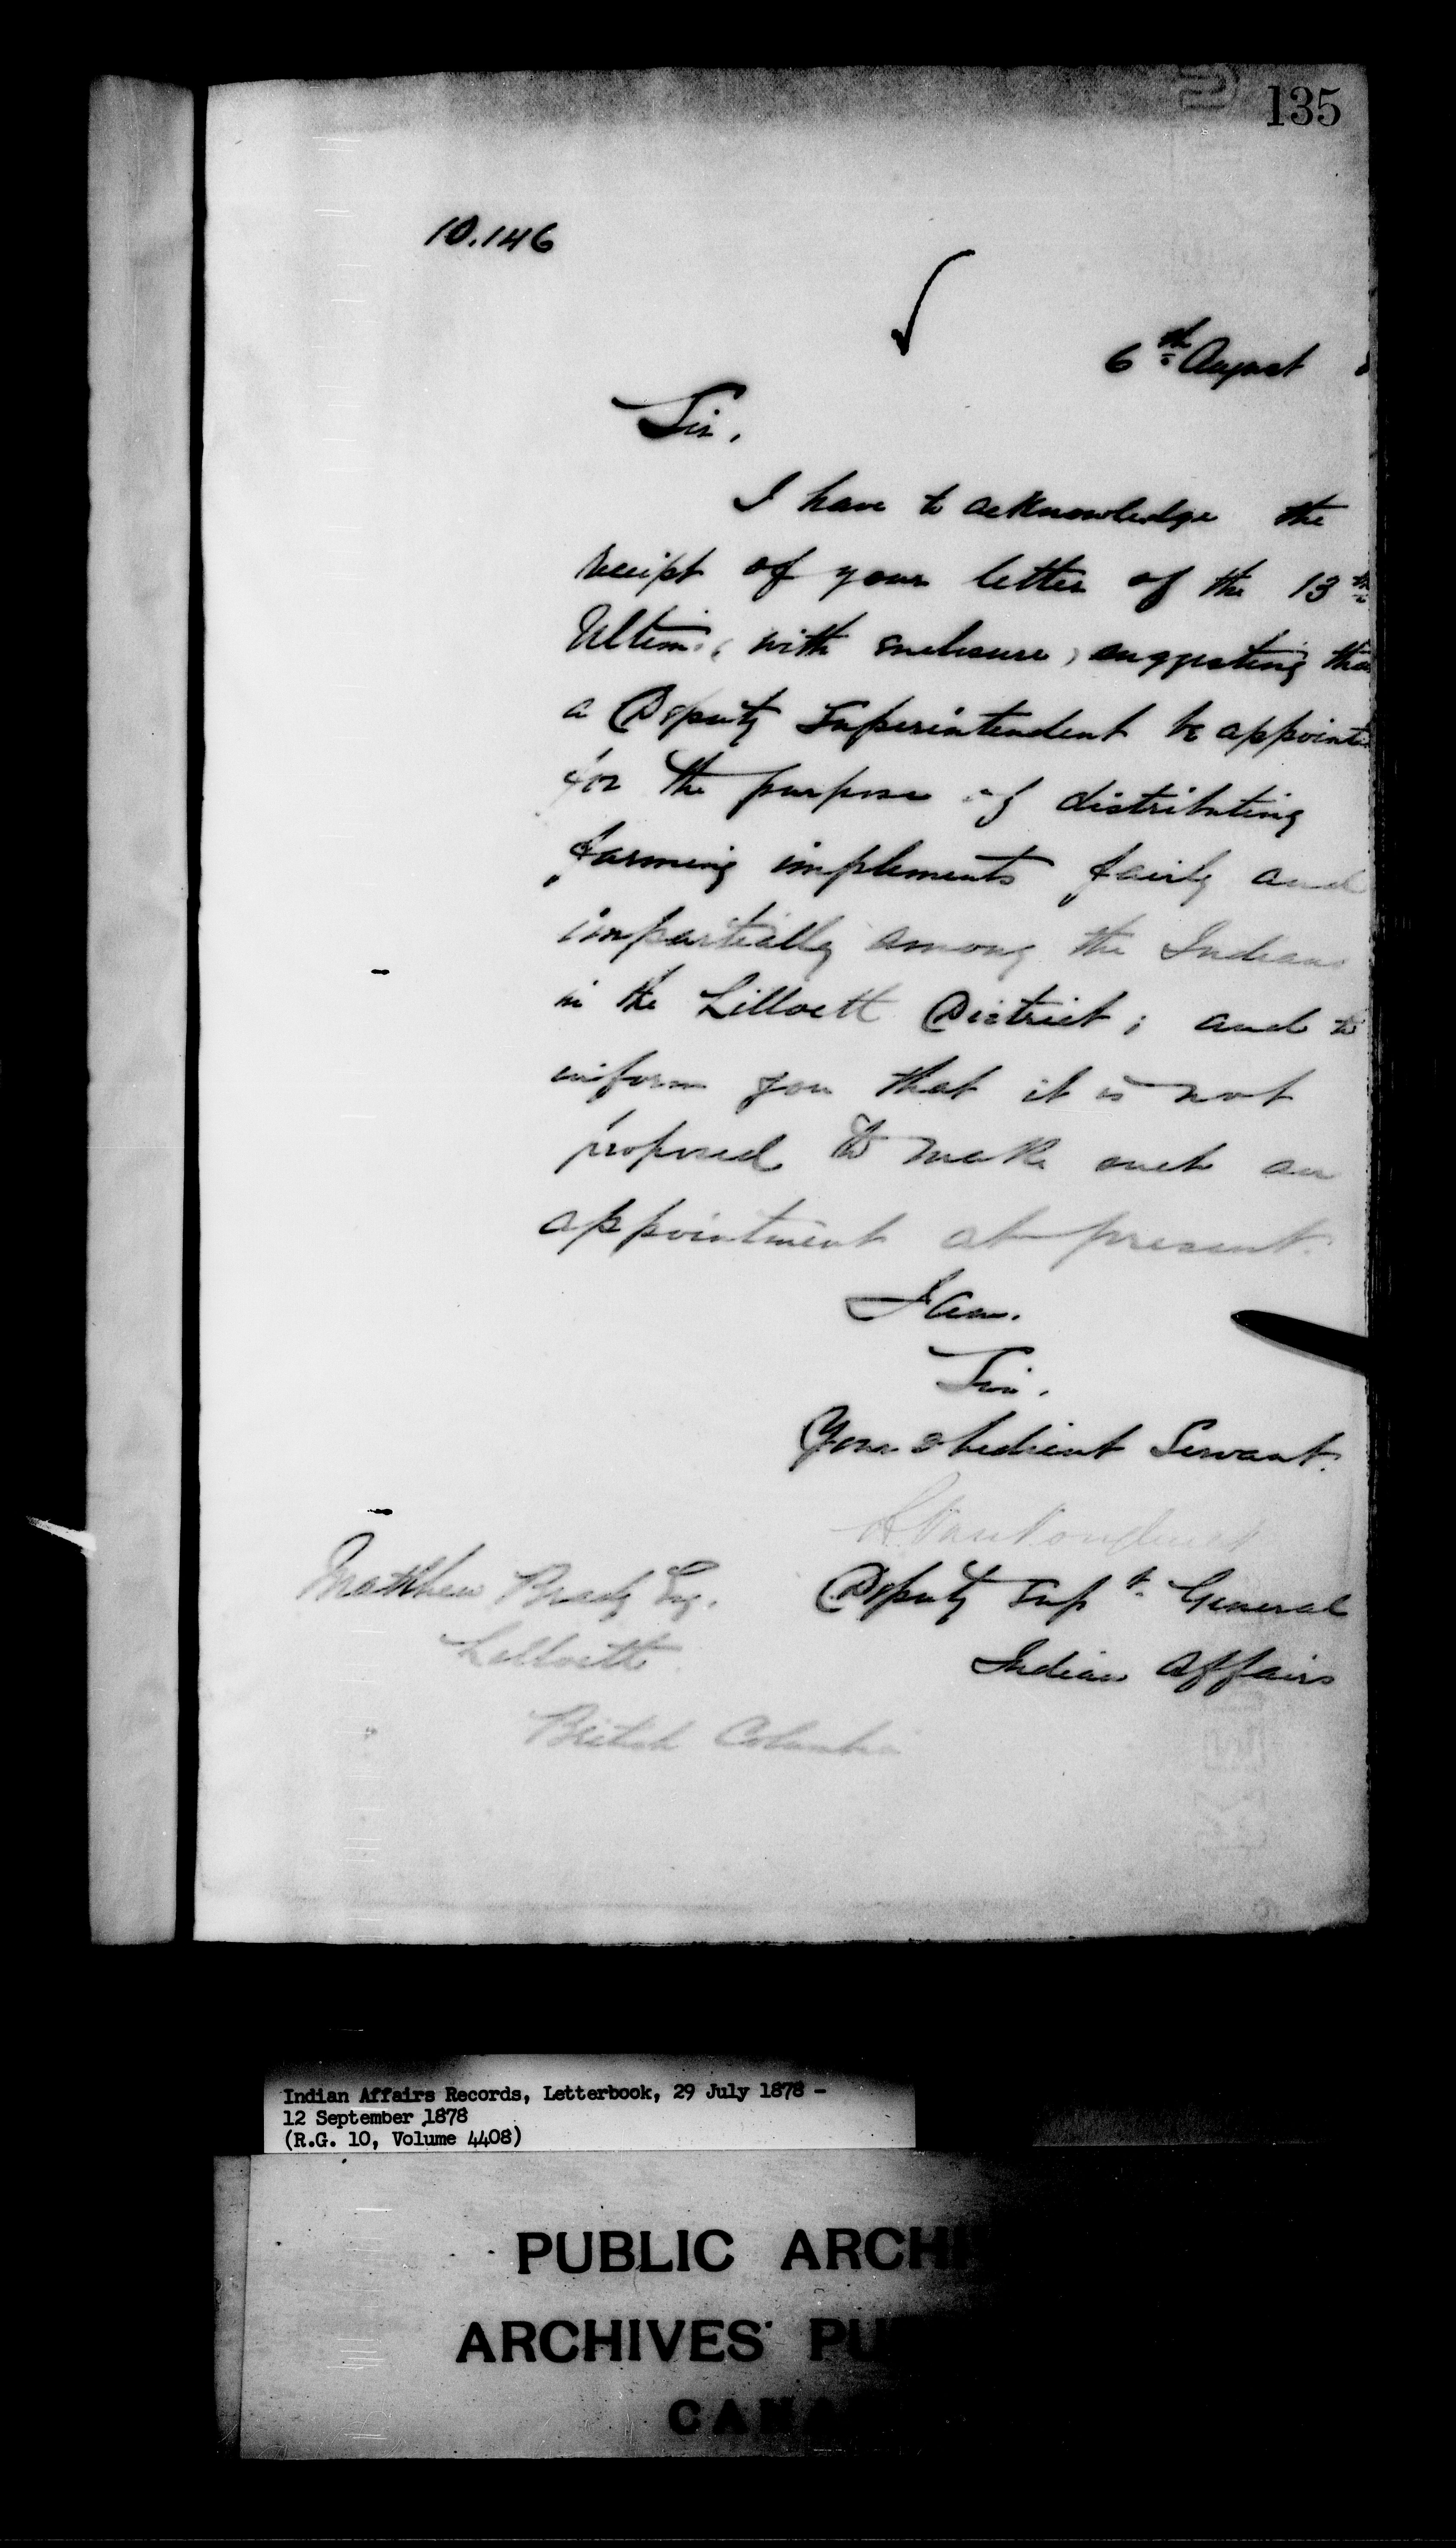 135
10.146
6th August
Sir,
I have to acknowledge the
receipt of your letter of the 13th
Ultimo, with enclosure, suggesting tha
a Deputy Superintendent be appointe
for the purpose of distributing
farming implements fairly and
impartially among the Indians
in the Lilloett District; and to
inform you that it is not
proposed to make such an
appointment at present.
I am.
Sir.
Your obedient Servant.
Deputy Supt. General
Indian Affairs
Matthew Brady Esq.
Lilloett
British Columbia
Indian Affairs Records, Letterbook, 29 July 1878 -
12 September 1878
(R.G. 10, Volume 4408)
PUBLIC ARCHI
ARCHIVES PU
CANA